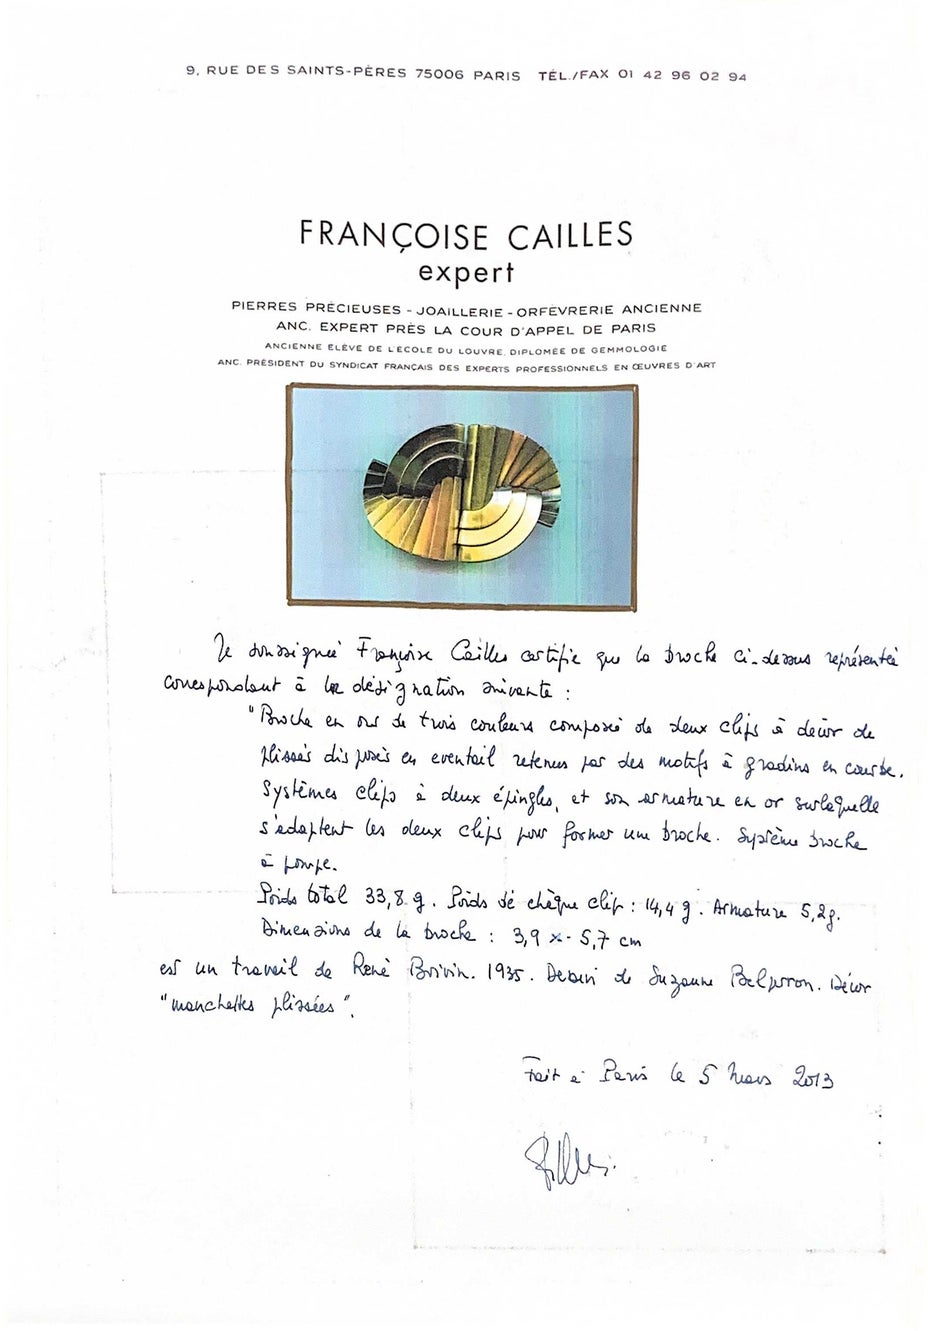 9, RUE DES SAINTS-PÈRES 75006 PARIS TÉL./FAX 01 42 96 02 94
FRANÇOISE CAILLES
expert
PIERRES PRÉCIEUSES - JOAILLERIE - ORFÈVRERIE ANCIENNE
ANC. EXPERT PRÈS LA COUR D'APPEL DE PARIS
ANCIENNE ÉLÈVE DE L'ÉCOLE DU LOUVRE, DIPLOMÉE DE GEMMOLOGIE
ANC. PRÉSIDENT DU SYNDICAT FRANÇAIS DES EXPERTS PROFESSIONNELS EN ŒUVRES D'ART
Je soussignée Françoise Cailles certifie que la broche ci-dessus représentée
correspondant à la désignation suivante :
"Broche en ors de trois couleurs composée de deux clips à décor de
plissés disposés en eventail retenus par des motifs à gradins en courbe.
Systèmes clips à deux épingles, et son armature en or sur laquelle
s'adaptent les deux clips pour former une broche. Système broche
à pompe.
Poids total 33,8 g. Poids de chaque clip : 14,4 g. Armature 5,2g.
Dimensions de la broche : 3,9 x 5,7 cm
est un travail de René Boivin. 1935. Dessin de Suzanne Belperron. Décor
"manchettes plissées".
Fait à Paris le 5 Mars 2013